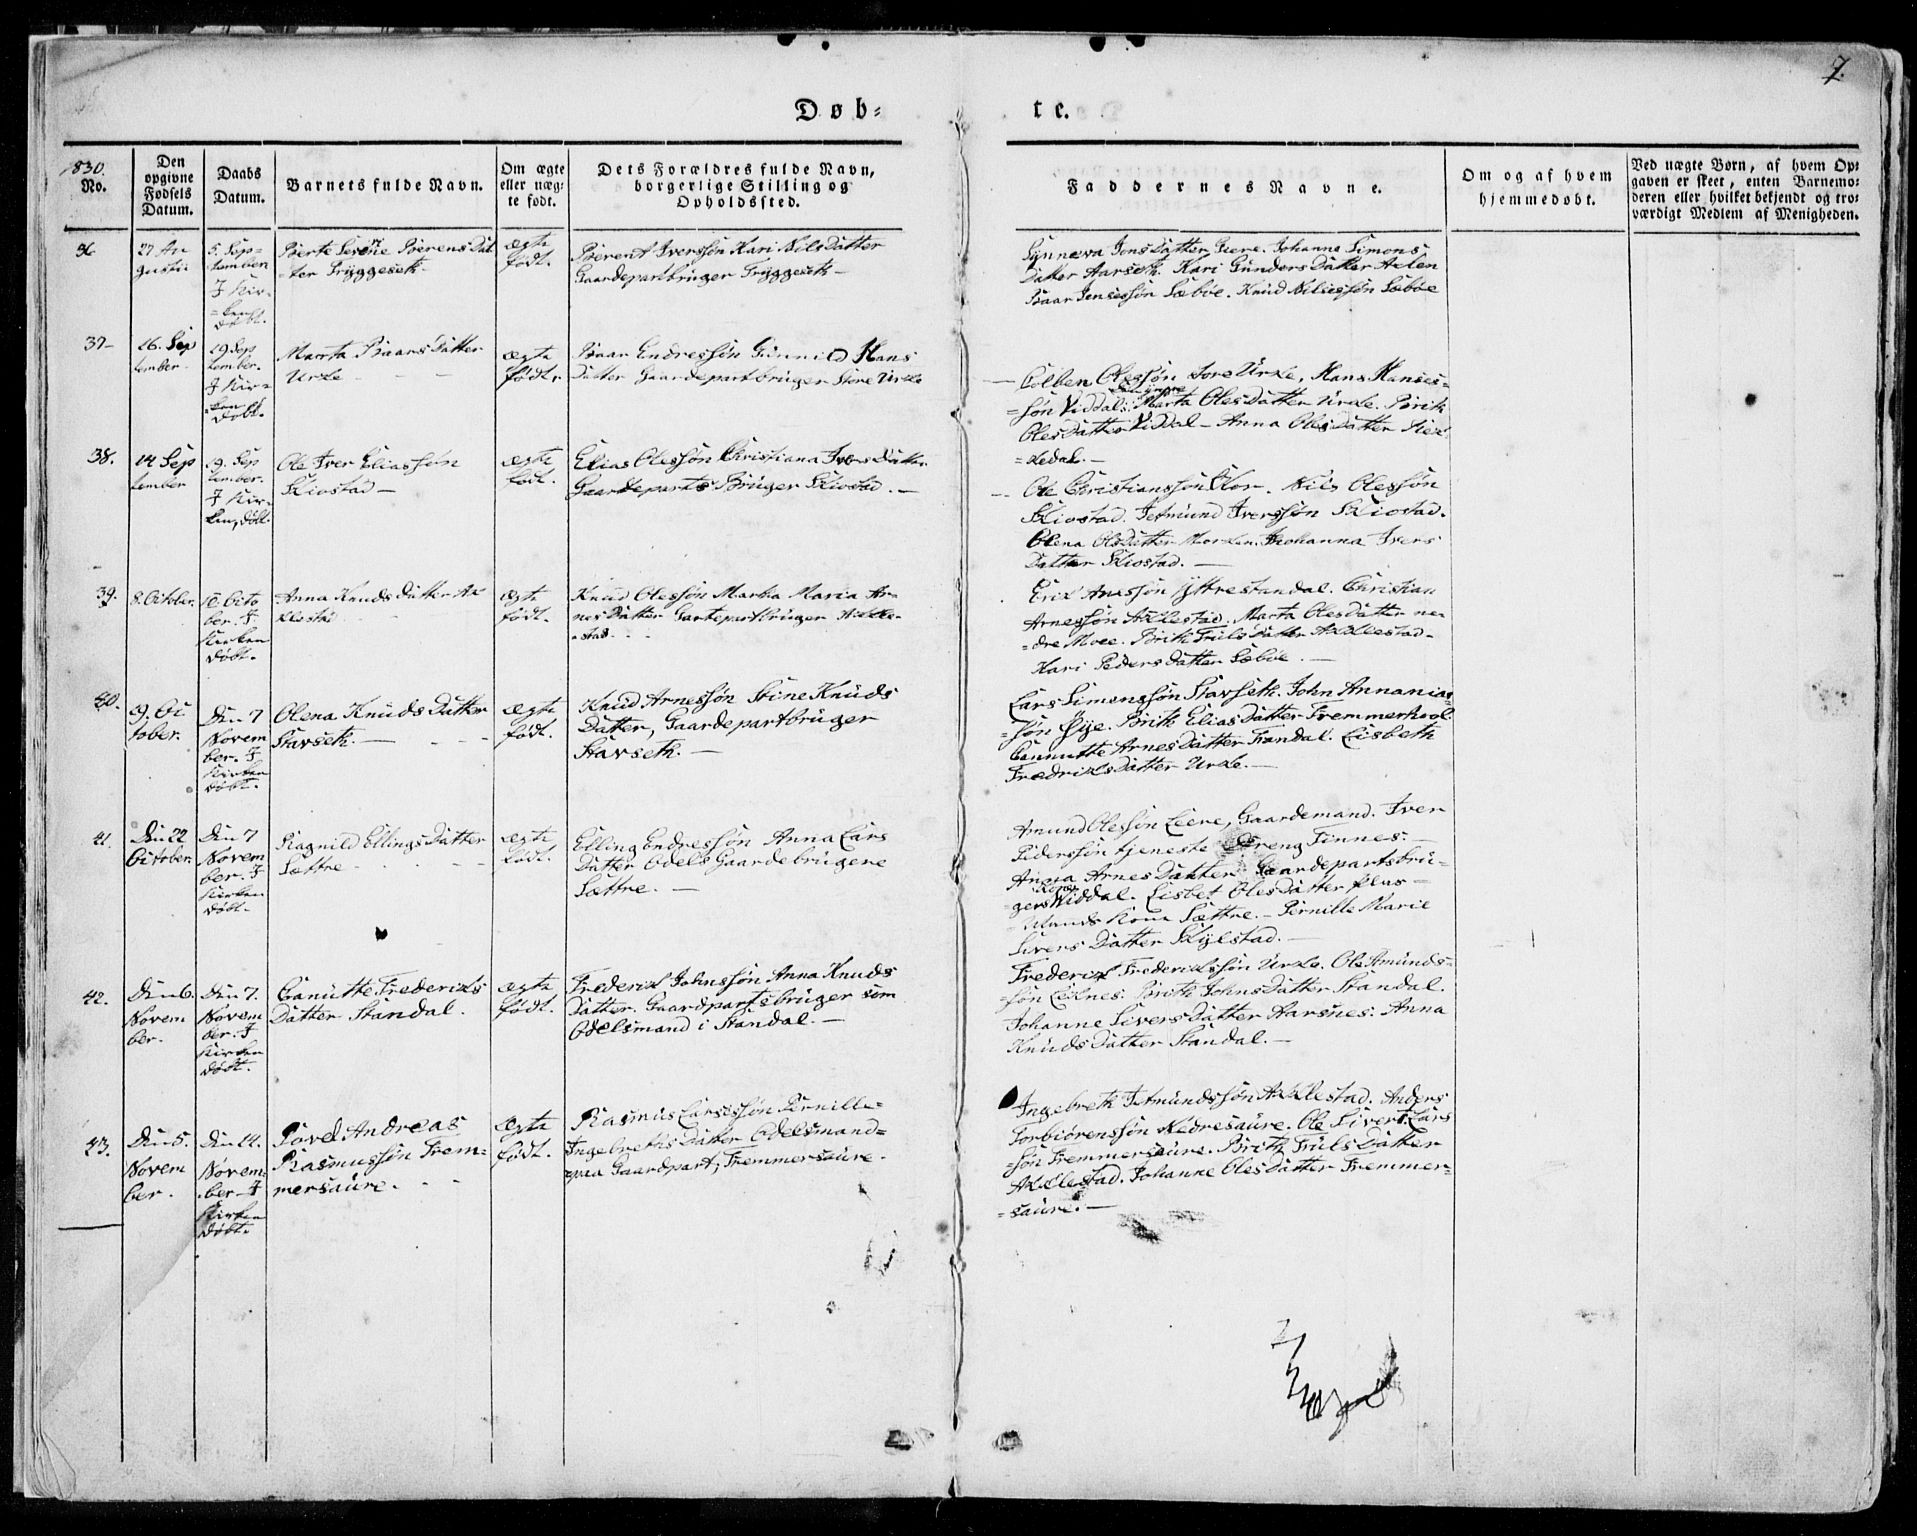 7.
Døb-
te.
1830.
No.
Den
opgivne
Fødsels
Datum.
Daabs
Datum.
Barnets fulde Navn.
Om ægte
eller uæg-
te født.
Dets Forældres fulde Navn,
borgerlige Stilling og
Opholdssted.
Faddernes Navne.
Om og af hvem
hjemmedøbt.
Ved uægte Børn, af hvem Op-
gaven er skeet, enten Barnemo-
deren eller hvilket bekjendt og tro-
værdigt Medlem af Menigheden.
36
27 Au
gusti
5. Sep-
tember
I Kir-
=ken
døbt.
Berte Serene Berens Dat
=ter Tryggeseth
ægte
født.
Berent Iverssøn Kari Nils Datter
Gaardepartbrüger Tryggeseth —
Synneva Jons Datter Leere. Johanna Simons
Datter Aarseth. Kari Gunders Datter
Baar Jensessøn Sæbøe. Knud Nilsessøn Sæbøe
37-
16. Sep
tember
19 Sep
tember.
I Kir-
=ken
døbt.
Marta Baars Datter
Urke
ægte
født.
Baar Endressøn Gunnild Hans
Datter Gaardepartbrüger Store Urke
Colben Olessøn Store Urke, Hans Hanses-
=søn Viddal. Marta Oles Datter Urke. Brith
Oles Datter Viddal - Anna Oles Datter
=ledal. —
38.
14 Sep
tember
19. Sep
tember.
I Kir-
ken, døbt.
Ole Iver Eliassøn
Skiostad —
ægte
født.
Elias Olessøn Christiana Ivers Datter
Gaardeparts Brüger Skiostad. —
Ole Christianssøn Nils Olessøn
Skiostad. Jetmund Iverssøn Skiostad.
Olena Ols Datter Johanna Ivers
Datter Skiostad. —
39.
8. October.
October. I
Kirken
døbt.
Anna Knuds Datter Ak
klestad
ægte
født.
Knud Olessøn Martha Maria Ar-
nes Datter Gartepartbrüger Akkle-
=stad.
Erik Anessøn Yttrestandal. Christian
Arnessøn Akklestad. Marta Oles Datter ne
=dre Moee. Brith Truls Datter Akklestad.
Kari Peders Datter Sæbøe. —
40.
9. Oc
tober.
Den 7
Novem
ber. I
Kirken
døbt.
Olena Knuds Datter
Stavseth. —
ægte
født.
Knud Arnessøn Stine Knüds
Datter, Gaardepartbrüger
Stavseth. —
Lars Simenssøn Stavseth. John Annanias
=søn Øye. Brith Elias Datter Fremmerhool
Canutte Arnes Datter Standal. Lisbeth
Fredriks Datter Urke. —
41.
Den 22
October.
Den 7
Novem
ber. I
Kirken
døbt.
Ragnild Ellings Datter
Sættre
ægte
født.
Elling Endressøn Anna Lars
Datter Odels Gaardebrügere
Sættre. —
Amund Olessøn Leere, Gaardemand. Iver
Pederssøn tjeneste Dreng Finnes. —
Anna Arnes Datter Gaardepartsbrü-
gers Kone Viddal. Lisbet Oles Datter
Kone Sættre. — Pernille Marie
Sivers Datter Skylstad. —
42.
Den 6.
Novem
ber.
Den 7.
Novem
ber. I
Kirken
døbt.
Canutte Frederiks
Datter Standal.
ægte
født.
Frederik Johnssøn Anna Knuds
Datter. Gaardpartsbrüger som
Odelsmand i Standal. —
Frederik Frederikssøn Urke. Ole Amunds-
=søn Brith Johns Datter Standal.
Johanne Sivers Datter Aarsnes. Anna
Knüds Datter Standal. —
43.
Den 5.
Novem
ber.
Den 14.
Novem-
ber. I
Kirken
døbt.
Povel Andreas
Rasmussøn Frem-
mersaure.
Ægte
født.
Rasmus Larsessøn Pernille
Ingebreths Datter Odelsmand
paa Gaardpart, Fremmersaure.
Ingebreth Jetmundssøn Akklestad. Anders
Torbiørenssøn Nedresaure. Ole Sivert Lars
søn Fremmersaure. Brith Truls Datter
Akklestad. Johanne Oles Datter Fremmer-
=saure. —